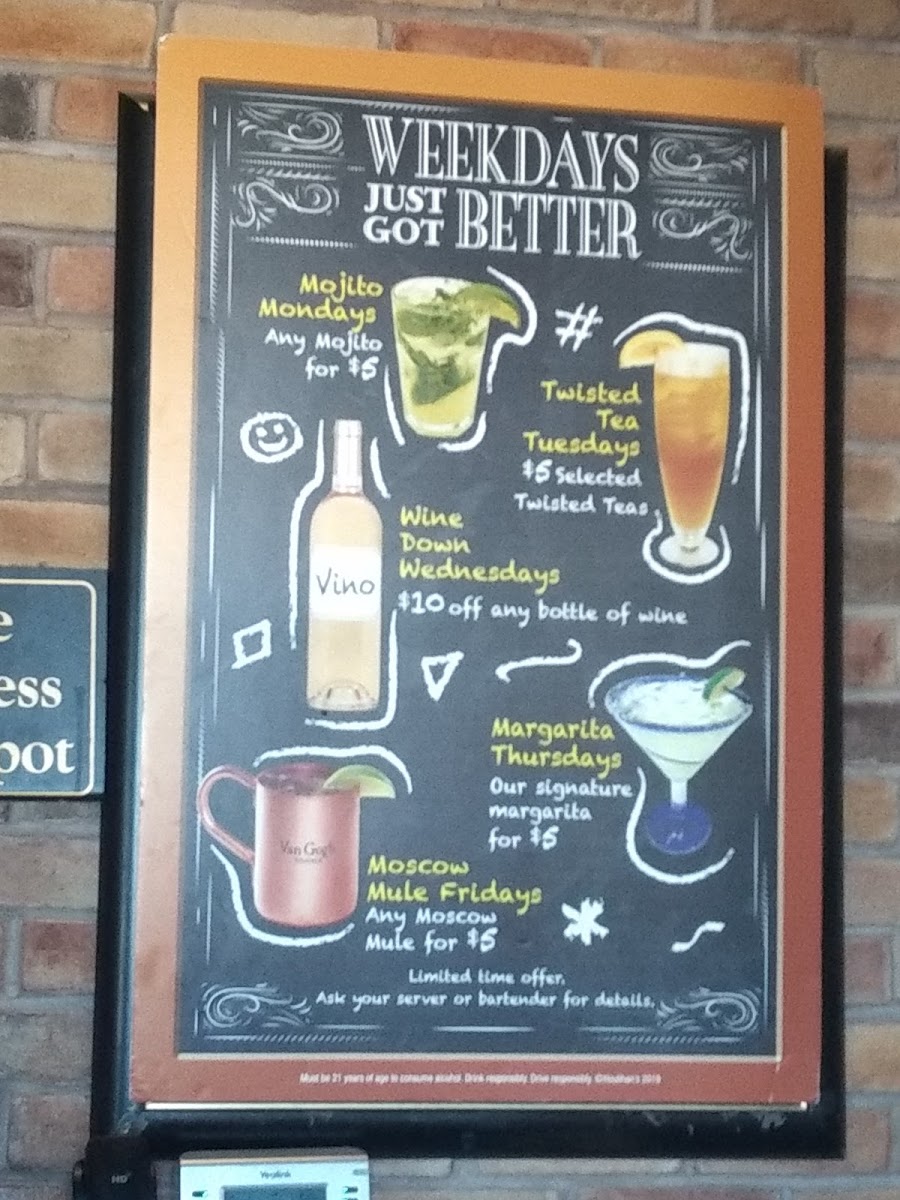 WEEKDAYS
JUST
GOT BETTER
Mojito
Mondays
Any Mojito
for $5
#
Twisted
Tea
Tuesdays
$5 Selected
Twisted Teas
Wine
Down
Wednesdays
$10 off any bottle of wine
Vino
Margarita
Thursdays
Our signature
margarita
for $5
Van Gogh
Moscow
Mule Fridays
Any Moscow
Mule for $5
*
Limited time offer.
Ask your server or bartender for details.
Must be 21 years of age to consume alcohol. Drink responsibly. Drive responsibly. ©Houlihan's 2019
e
ess
pot
HD
Yealink